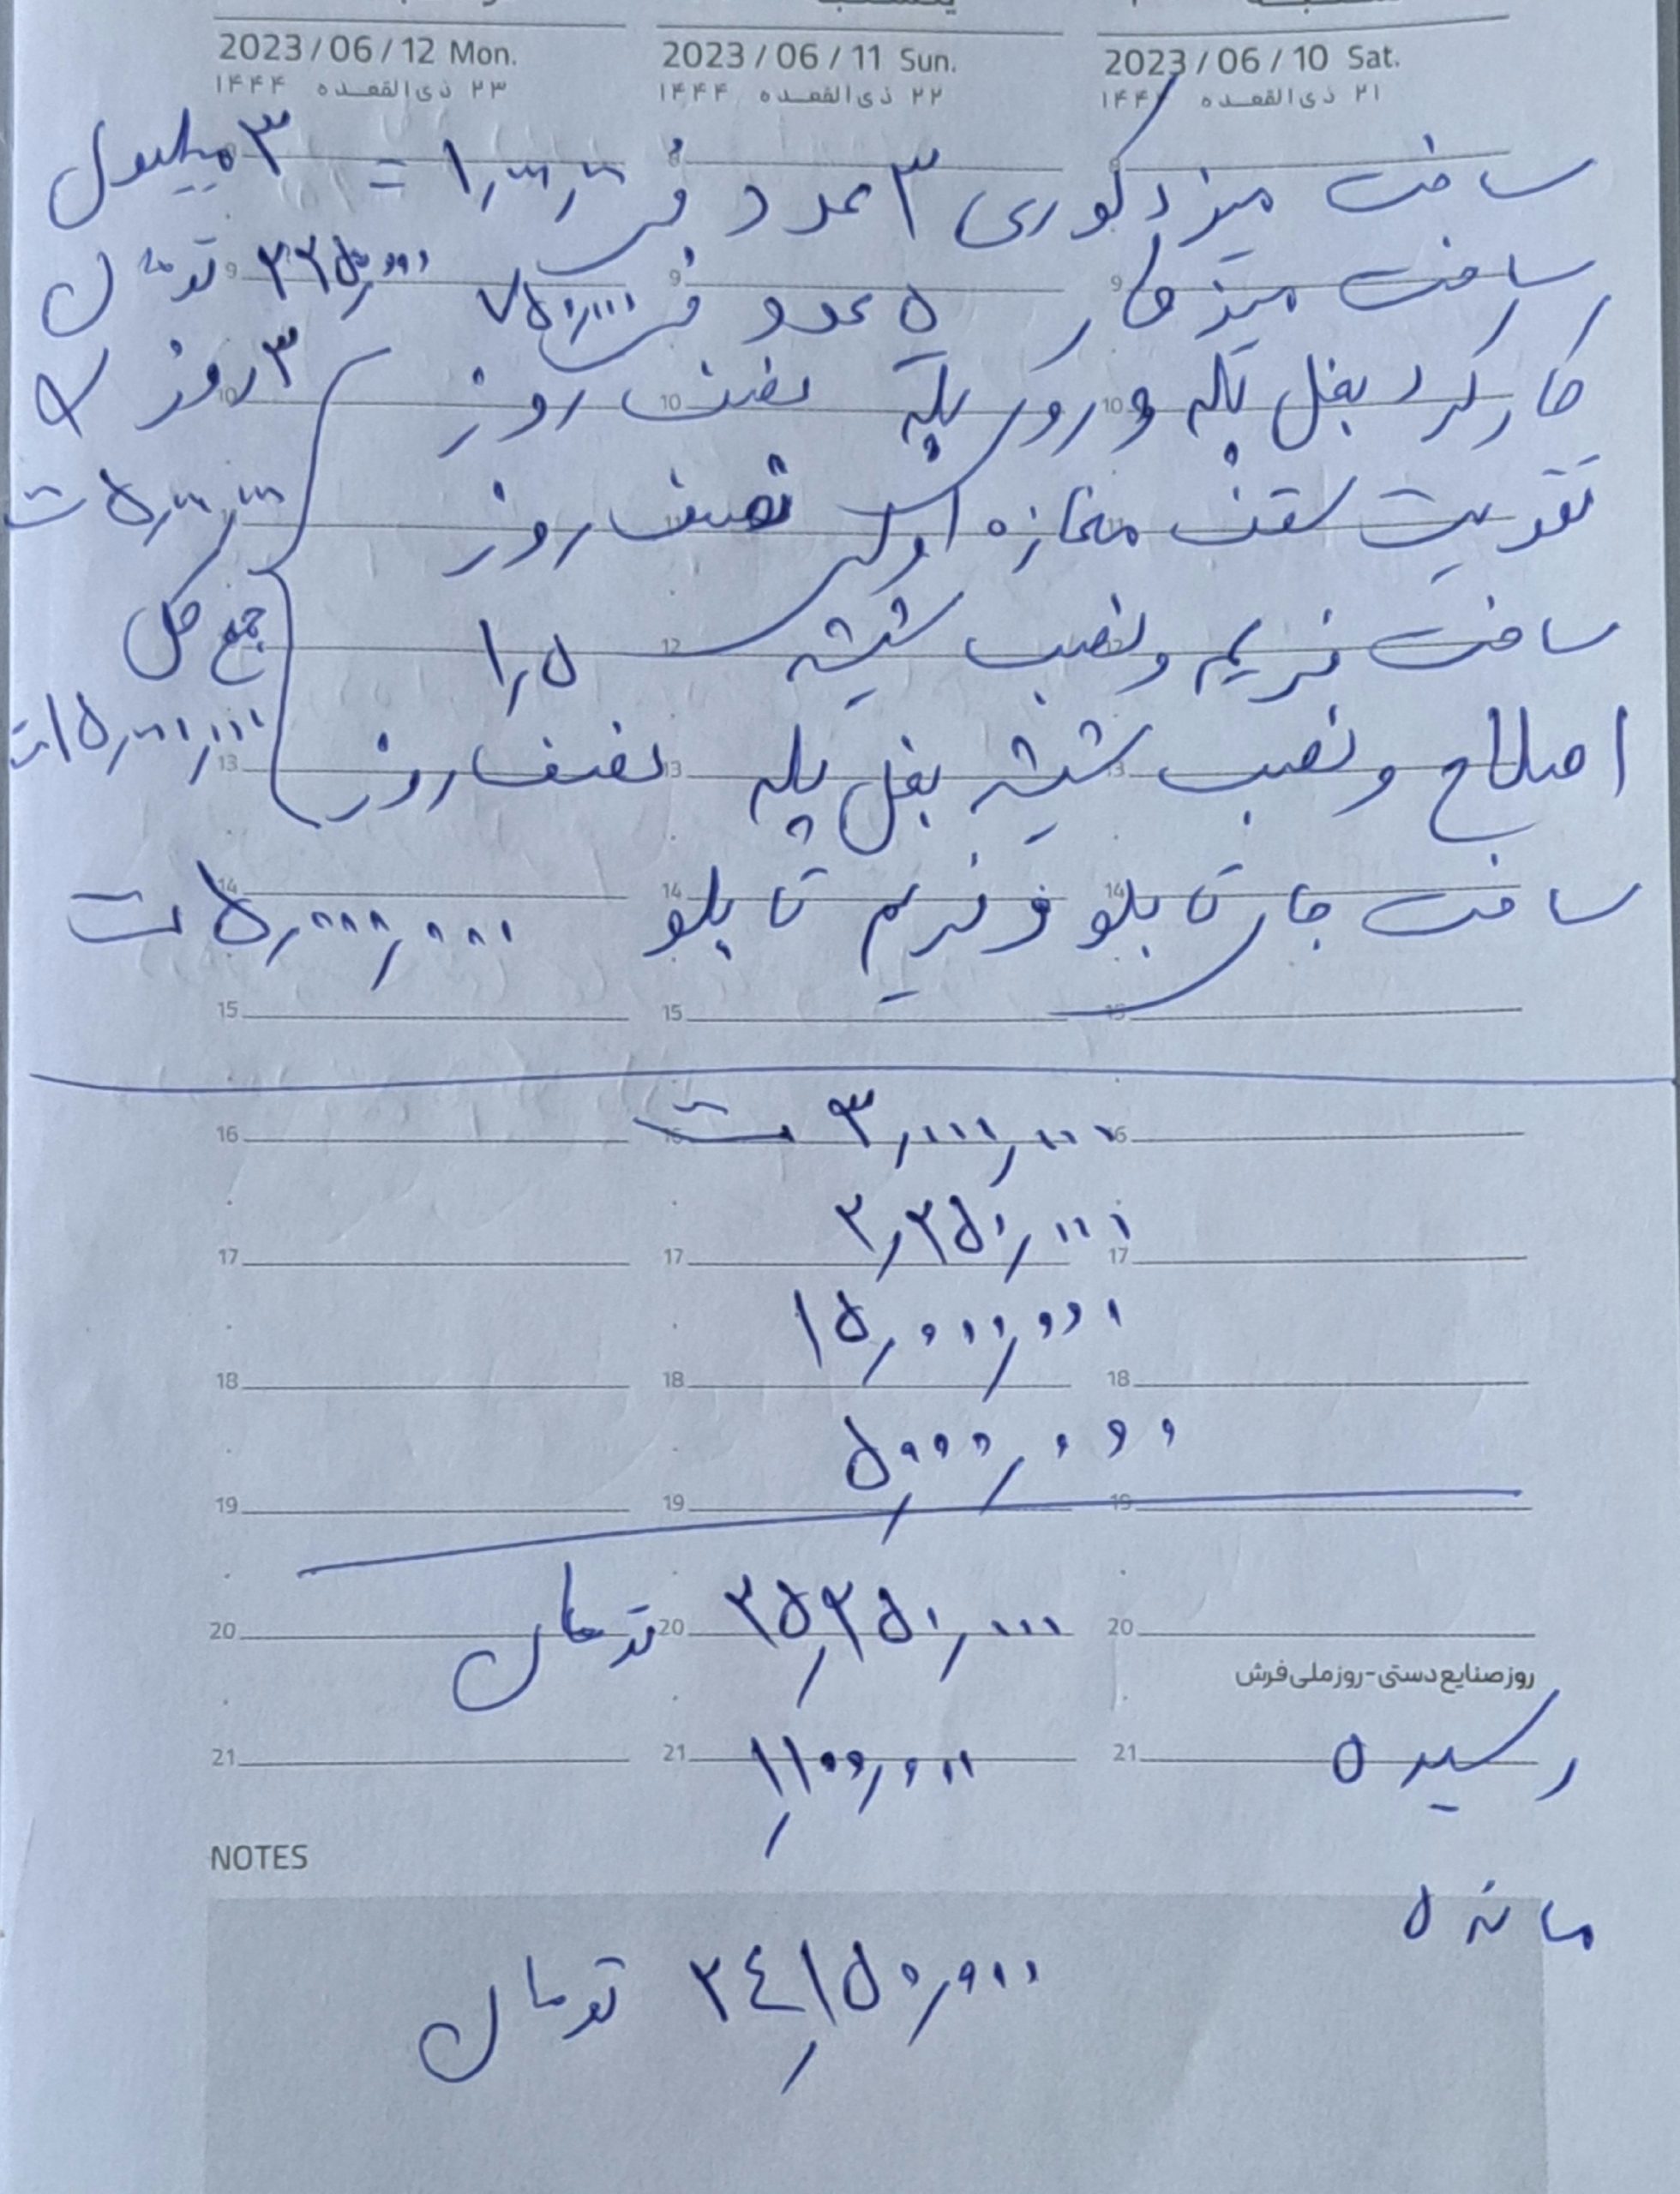 2023/06/10 Sat. 2023/06/11 Sun. 2023/06/12 Mon.
۲۱ ذی‌القعـده ۱۴۴۴ ۲۲ ذی‌القعـده ۱۴۴۴ ۲۳ ذی‌القعـده ۱۴۴۴
ساخت میز دکوری ۳ عدد فی ۱,۰۰۰,۰۰۰ = ۳ میلیون
ساخت میز کار ۵ عدد فی ۷۵۰,۰۰۰ تومان
کارکرد بغل پله و روی پله نصف روز ۳ روز
تقویت سقف مغازه اولی نصف روز ۵,۰۰۰,۰۰۰ ت
ساخت فریم و نصب شیشه ۱,۵ جمع کل
اصلاح و نصب شیشه بغل پله نصف روز ۱۵,۰۰۰,۰۰۰ ت
ساخت جای تابلو و فریم تابلو ۵,۰۰۰,۰۰۰ ت
۳,۰۰۰,۰۰۰ ت
۲,۲۵۰,۰۰۰
۱۵,۰۰۰,۰۰۰
۵,۰۰۰,۰۰۰
۲۵,۲۵۰,۰۰۰ تومان
روز صنایع دستی - روز ملی فرش
رسیده ۱,۱۰۰,۰۰۰
NOTES
مانده
۲۴,۱۵۰,۰۰۰ تومان